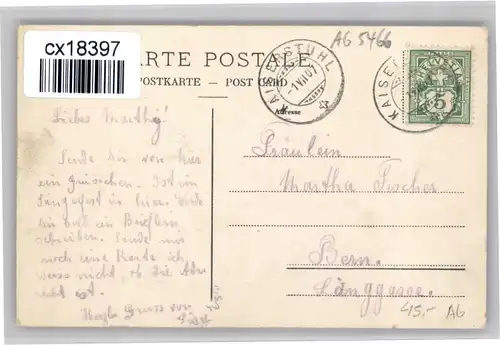 cx18397
CARTE POSTALE
POSTKARTE – POST CARD
AG 5466
KAISERSTUHL
1 VII 07
KAISER
HELVETIA
5
Adresse
Liebes Marthy!
Sende dir von hier
ein Grüsschen. Ist ein
Sängerfest da hier. Werde
dir bald ein Brieflein
schreiben. Sende mir
noch eine Karte ich
weiss nicht, ob die Adr
recht ist.
Herzl Gruss von
Fräulein
Martha Fischer
Bern.
Länggasse.
45.- AG